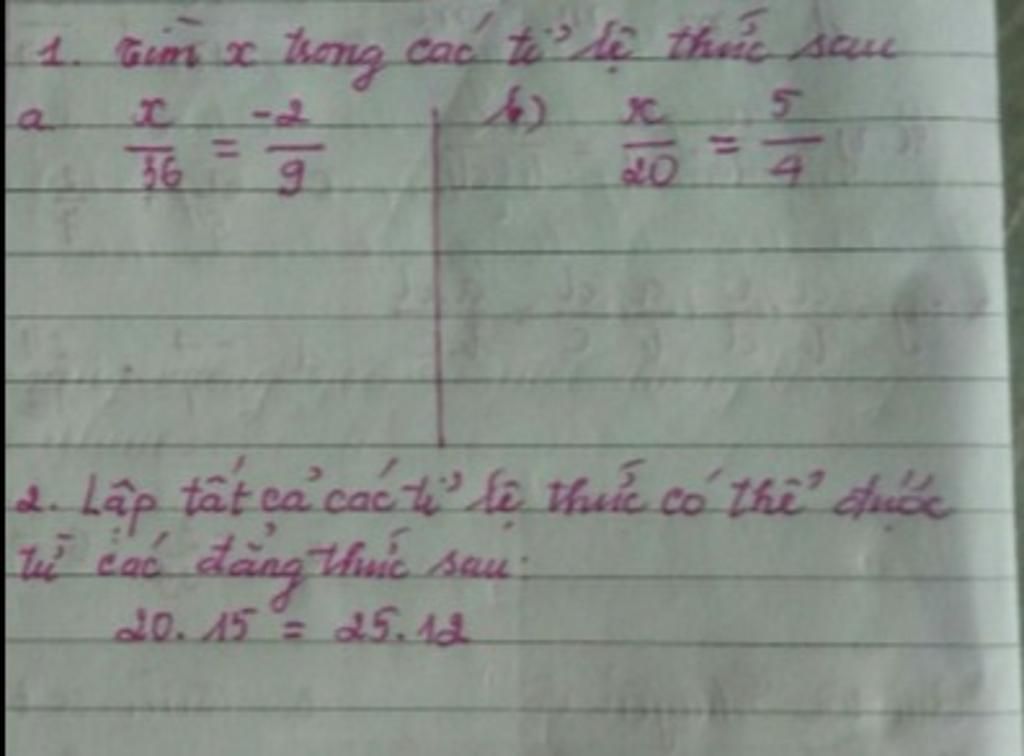 1. Tìm x trong các tỉ lệ thức sau
a x/36 = -2/9 b) x/20 = 5/4
2. Lập tất cả các tỉ lệ thức có thể được
từ các đẳng thức sau:
20. 15 = 25.12